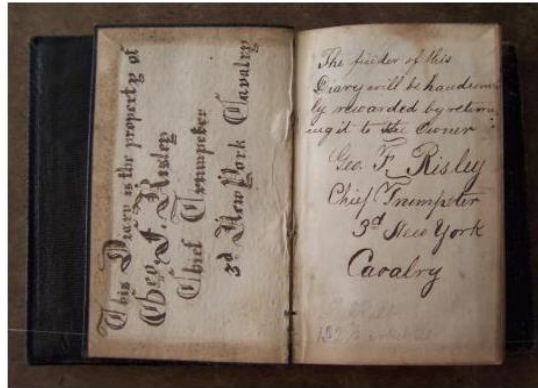 This Diary is the property of
Geo. F. Risley
Chief Trumpeter
3d New York Cavalry
The finder of this
Diary will be handsom
ly rewarded by return
ing it to the owner
Geo. F. Risley
Chief Trumpeter
3d New York
Cavalry